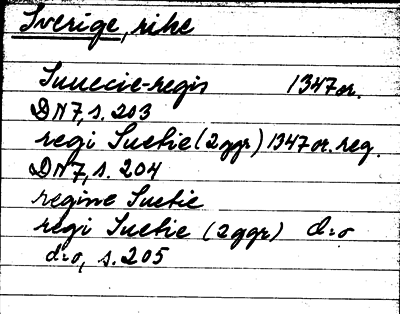 Sverige, rike
Suuecie-regis 1347 or.
DN7, s. 203
regi Suetie (2 ggr) 1347 or. reg.
DN7, s. 204
regine Suetie
regi Suetie (2 ggr) d:o
d:o, s. 205